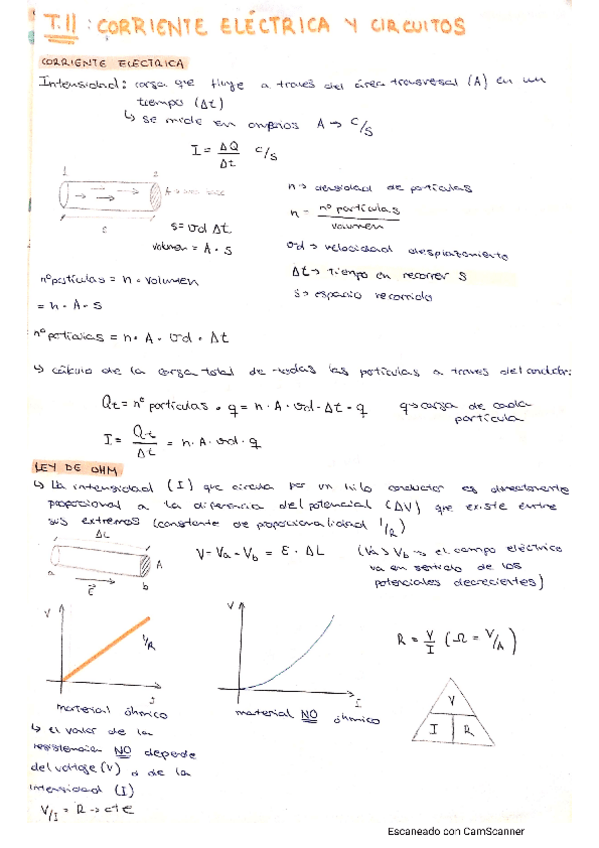 T.11: CORRIENTE ELÉCTRICA Y CIRCUITOS
CORRIENTE ELECTRICA
Intensidad: carga que fluye a traves del área transversal (A) en un
tiempo (Δt)
↳ se mide en amperios A → C/s
I = ΔQ/Δt C/s
n → densidad de partículas
n = nº partículas/volumen
A → area base
s
s = vd Δt
volumen = A · s
vd → velocidad desplazamiento
Δt → tiempo en recorrer s
s → espacio recorrido
nº partículas = n · volumen
= n · A · s
nº partículas = n · A · vd · Δt
↳ cálculo de la carga total de todas las partículas a traves del conductor:
Qt = nº partículas · q = n · A · vd · Δt · q
q → carga de cada
partícula
I = Qt/Δt = n · A · vd · q
LEY DE OHM
↳ La intensidad (I) que circula por un hilo conductor es directamente
proporcional a la diferencia del potencial (ΔV) que existe entre
sus extremos (constante de proporcionalidad 1/R)
ΔL
a
A
b
E
V = Va - Vb = E · ΔL
(Va > Vb → el campo eléctrico
va en sentido de los
potenciales decrecientes)
V
1/R
I
material óhmico
V
I
material NO óhmico
R = V/I (Ω = V/A)
V
I R
↳ el valor de la
resistencia NO depende
del voltaje (V) o de la
intensidad (I)
V/I = R → cte
Escaneado con CamScanner